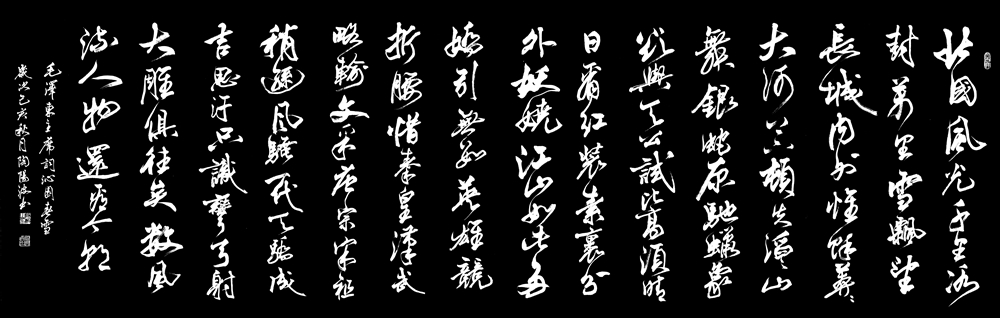 北國風光千里冰
封萬里雪飄望
長城內外惟餘莽々
大河上下頓失滔々山
舞銀蛇原馳蠟象
欲與天公試比高須晴
日看紅裝素裹分
外妖嬈江山如此多
嬌引無數英雄競
折腰惜秦皇漢武
略輸文采唐宗宋祖
稍遜風騷一代天驕成
吉思汗只識彎弓射
大雕俱往矣數風
流人物還看今朝
毛澤東主席詞沁園春雪
歲次己亥秋月陶陽書